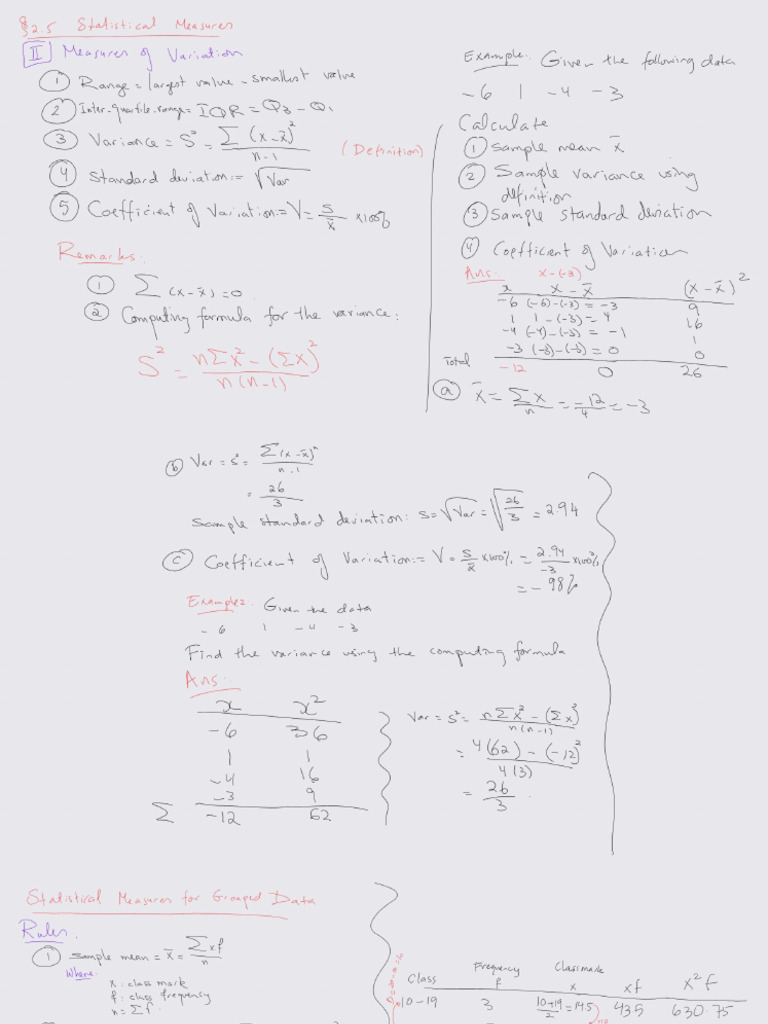 §2.5 Statistical Measures
II Measures of Variation
① Range = largest value - smallest value
② Inter-quartile-range = IQR = Q₃ - Q₁
③ Variance = S² = Σ(x-x̄)² / n-1 (Definition)
④ Standard deviation := √Var
⑤ Coefficient of Variation := V = S/x̄ ×100%
Remarks:
① Σ(x-x̄) = 0
② Computing formula for the variance:
S² = nΣx² - (Σx)² / n(n-1)
Example: Given the following data
-6 1 -4 -3
Calculate
① Sample mean x̄
② Sample variance using
definition
③ Sample standard deviation
④ Coefficient of Variation
Ans: x-(-3)
x x-x̄ (x-x̄)²
-6 (-6)-(-3) = -3 9
1 1-(-3) = 4 16
-4 (-4)-(-3) = -1 1
-3 (-3)-(-3) = 0 0
Total -12 0 26
ⓐ x̄ = Σx/n = -12/4 = -3
ⓑ Var = S² = Σ(x-x̄)² / n-1
= 26/3
Sample standard deviation: S = √Var = √26/3 = 2.94
ⓒ Coefficient of Variation := V = S/x̄ ×100% = 2.94/-3 ×100%
= -98%
Example2: Given the data
-6 1 -4 -3
Find the variance using the computing formula
Ans:
x x²
-6 36
1 1
-4 16
-3 9
Σ -12 62
Var = S² = nΣx² - (Σx)² / n(n-1)
= 4(62) - (-12)² / 4(3)
= 26/3
Statistical Measures for Grouped Data
Rules.
① Sample mean = x̄ = Σxf / n
Where:
x: class mark
f: class frequency
n = Σf
Class Frequency f Classmark x xf x²f
10-19 3 10+19/2 = 14.5 43.5 630.75